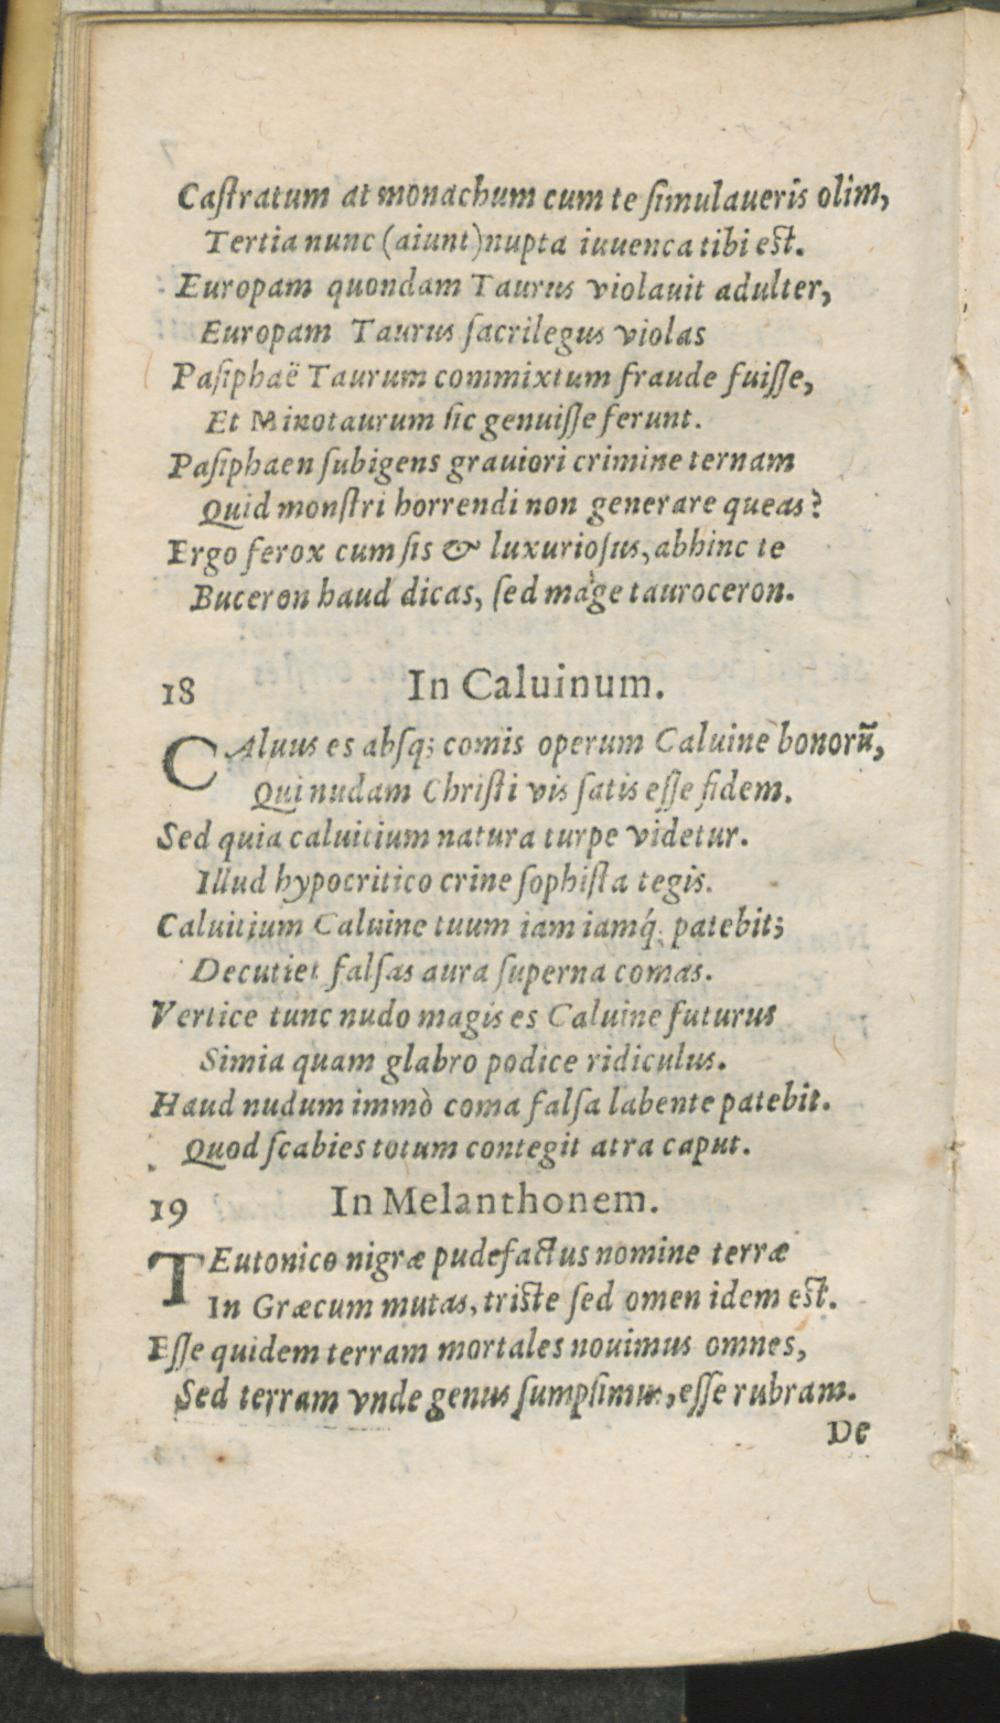 Caſtratum at monachum cum te ſimulaueris olim,
Tertia nunc (aiunt) nupta iuuenca tibi eſt.
Europam quondam Taurus violauit adulter,
Europam Taurus ſacrilegus violas
Paſiphaë Taurum commixtum fraude fuiſſe,
Et Minotaurum ſic genuiſſe ferunt.
Paſiphaen ſubigens grauiori crimine ternam
Quid monſtri horrendi non generare queas?
Ergo ferox cum ſis & luxurioſus, abhinc te
Buceron haud dicas, ſed mage tauroceron.
18 In Caluinum.
CAluus es abſq; comis operum Caluine bonorũ,
Qui nudam Chriſti vis ſatis eſſe fidem.
Sed quia caluitium natura turpe videtur.
Illud hypocritico crine ſophiſta tegis.
Caluitium Caluine tuum iam iamq́; patebit;
Decutiet falſas aura ſuperna comas.
Vertice tunc nudo magis es Caluine futurus
Simia quam glabro podice ridiculus.
Haud nudum immò coma falſa labente patebit.
Quod ſcabies totum contegit atra caput.
19 In Melanthonem.
TEutonico nigræ pudefactus nomine terræ
In Græcum mutas, triſte ſed omen idem eſt.
Eſſe quidem terram mortales nouimus omnes,
Sed terram vnde genus ſumpſimus, eſſe rubram.
De